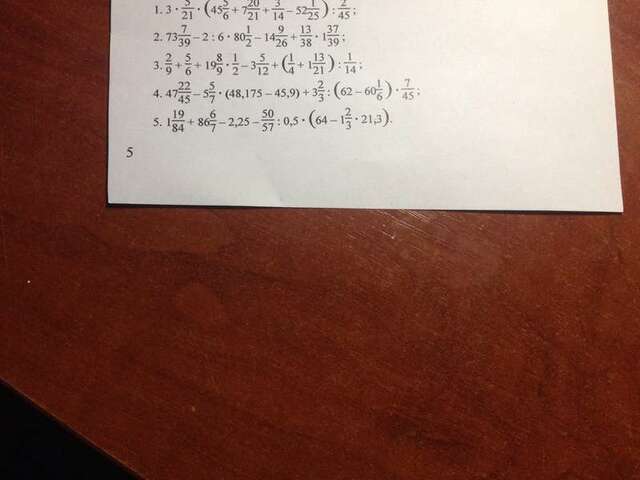 1. 3 · 5/21 · (45 5/6 + 7 20/21 + 3/14 − 52 1/25) : 2/45;
2. 73 7/39 − 2 : 6 · 80 1/2 − 14 9/26 + 13/38 · 1 37/39;
3. 2/9 + 5/6 + 19 8/9 · 1/2 − 3 5/12 + (1/4 + 1 13/21) : 1/14;
4. 47 22/45 − 5 5/7 · (48,175 − 45,9) + 3 2/3 : (62 − 60 1/6) · 7/45;
5. 1 19/84 + 86 6/7 − 2,25 − 50/57 : 0,5 · (64 − 1 2/3 · 21,3).
5